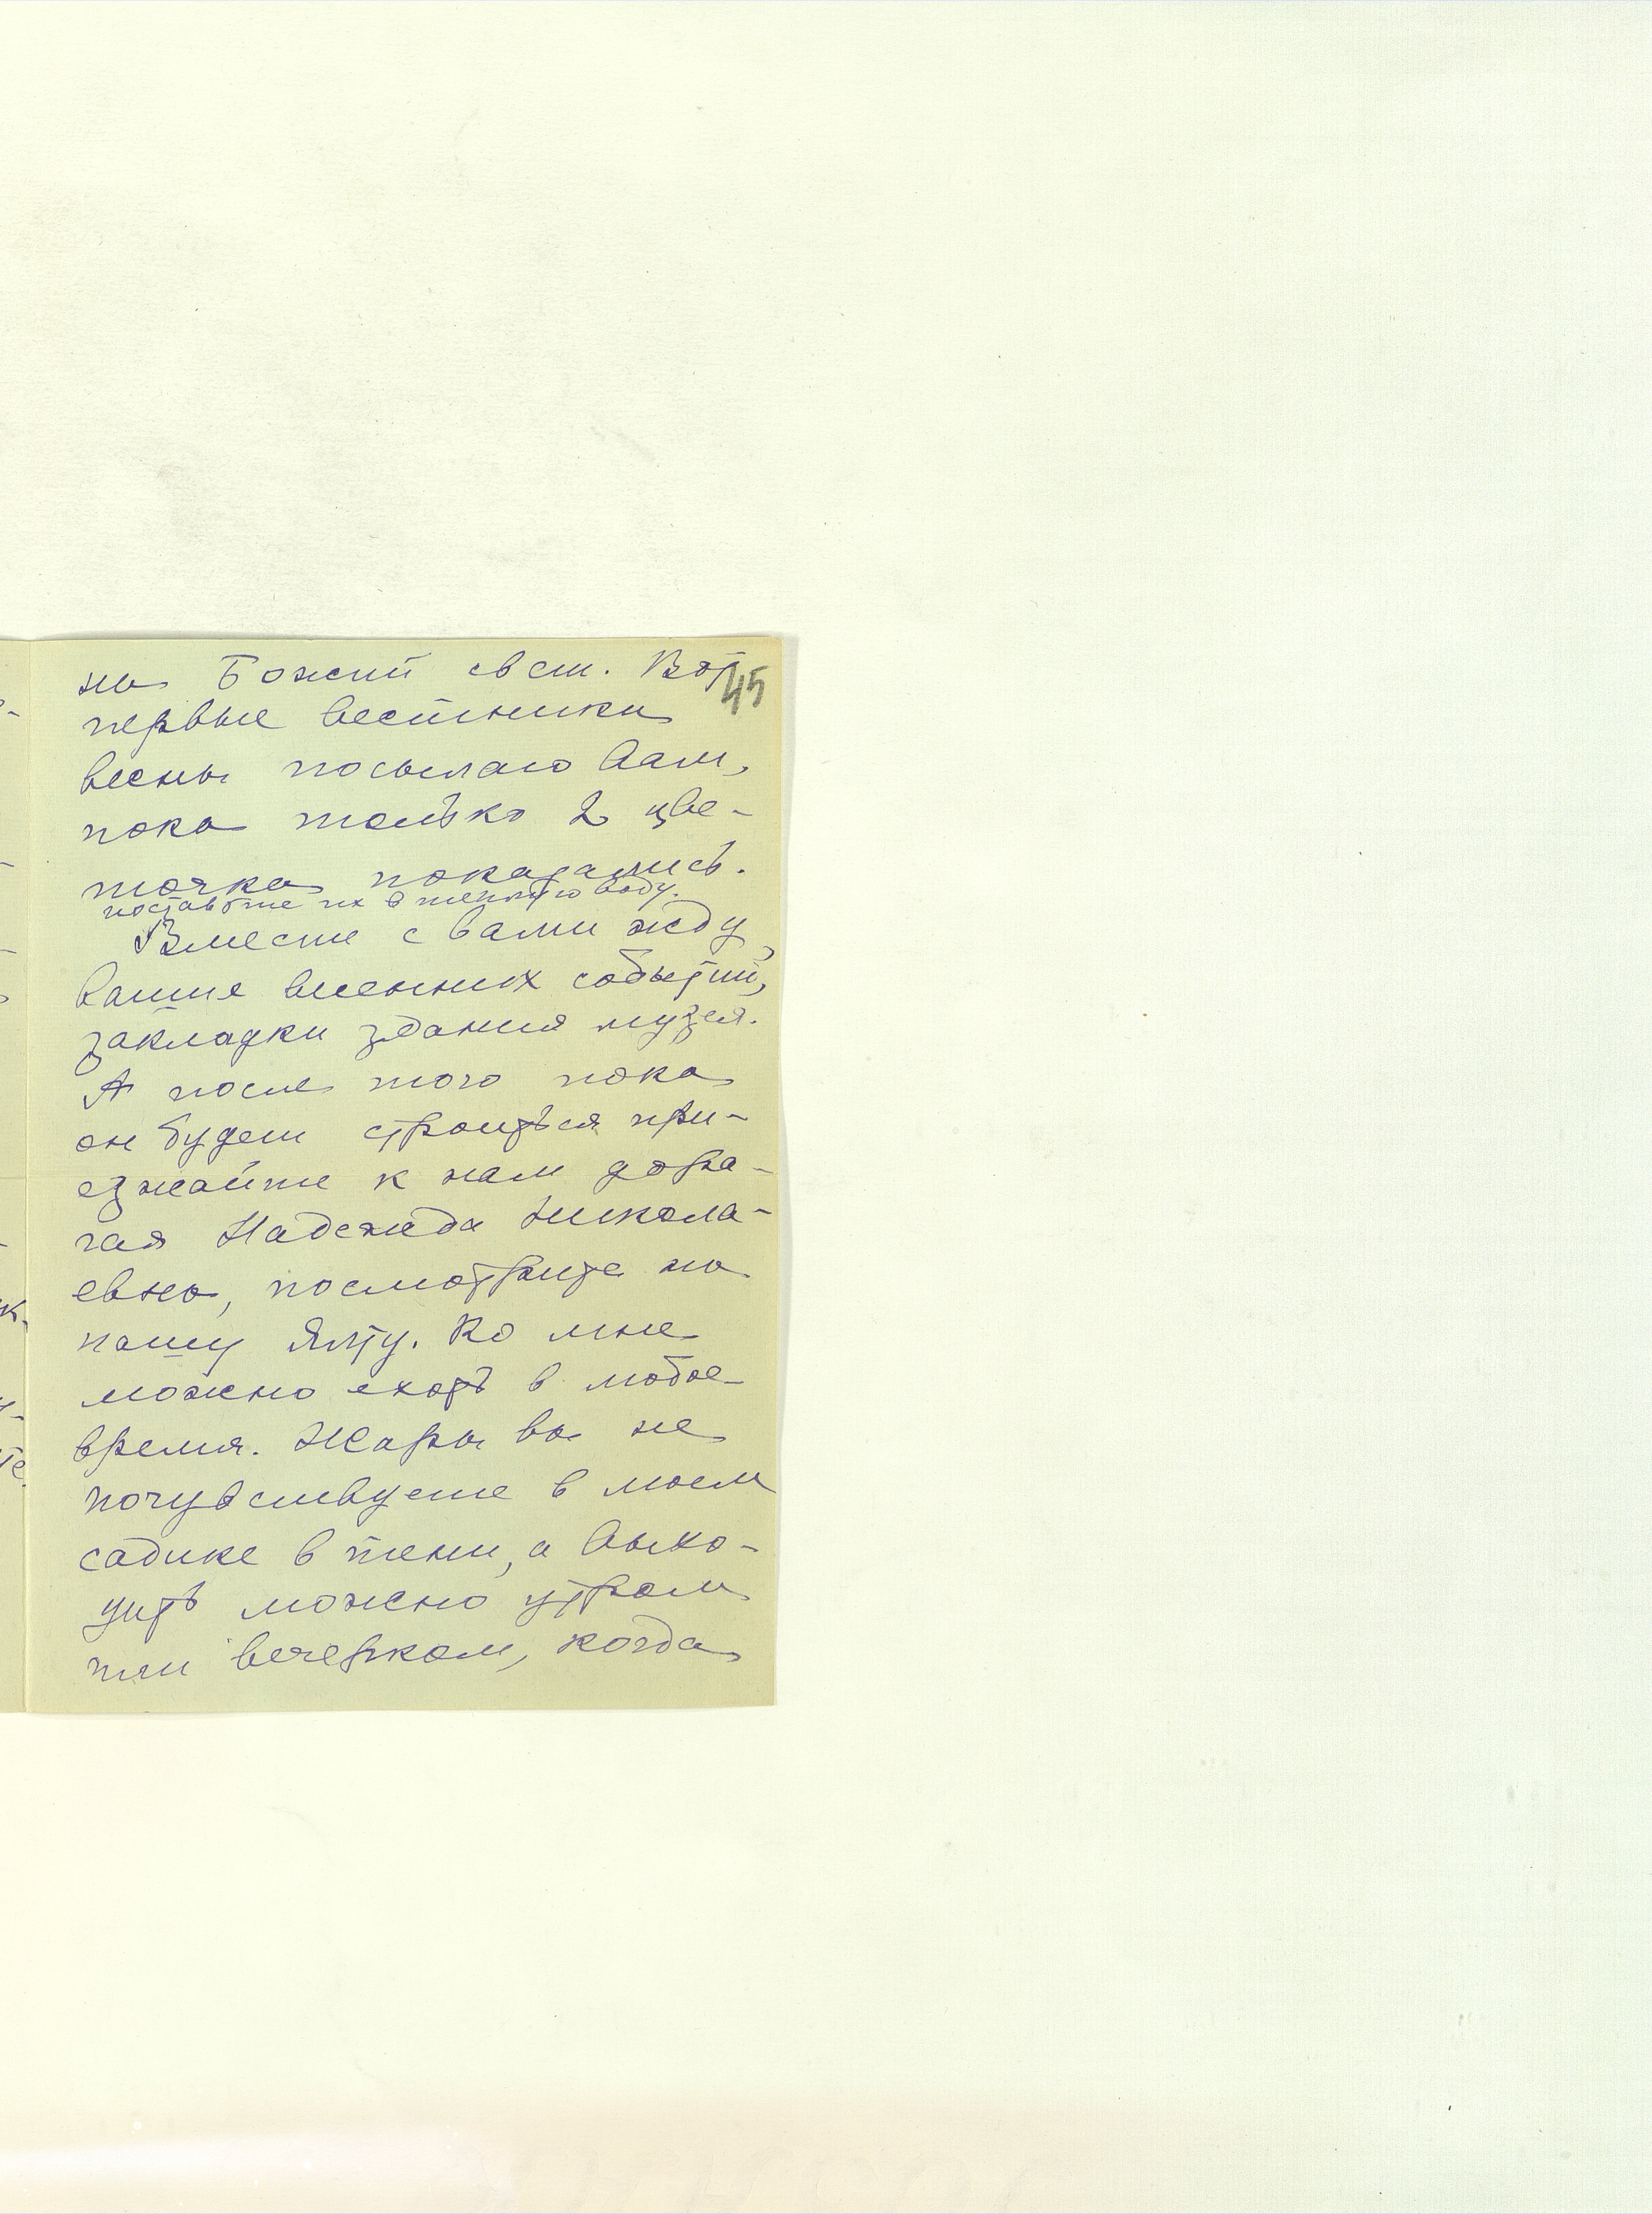 на Божий свет. Вот
45
первые вестники
весны посылаю Вам,
пока только 2 цве-
точка показались.
поставьте их в теплую воду.
Вместе с вами жду
ваших весенних событий,
закладки здания музея.
А после того пока
он будет строиться при-
езжайте к нам дора-
гая Надежда Никола-
евна, посмотрите на
нашу Ялту. Ко мне
можно ехать в любое
время. Жары вы не
почувствуете в моем
садике в тени, а выхо-
дить можно утром
или вечерком, когда